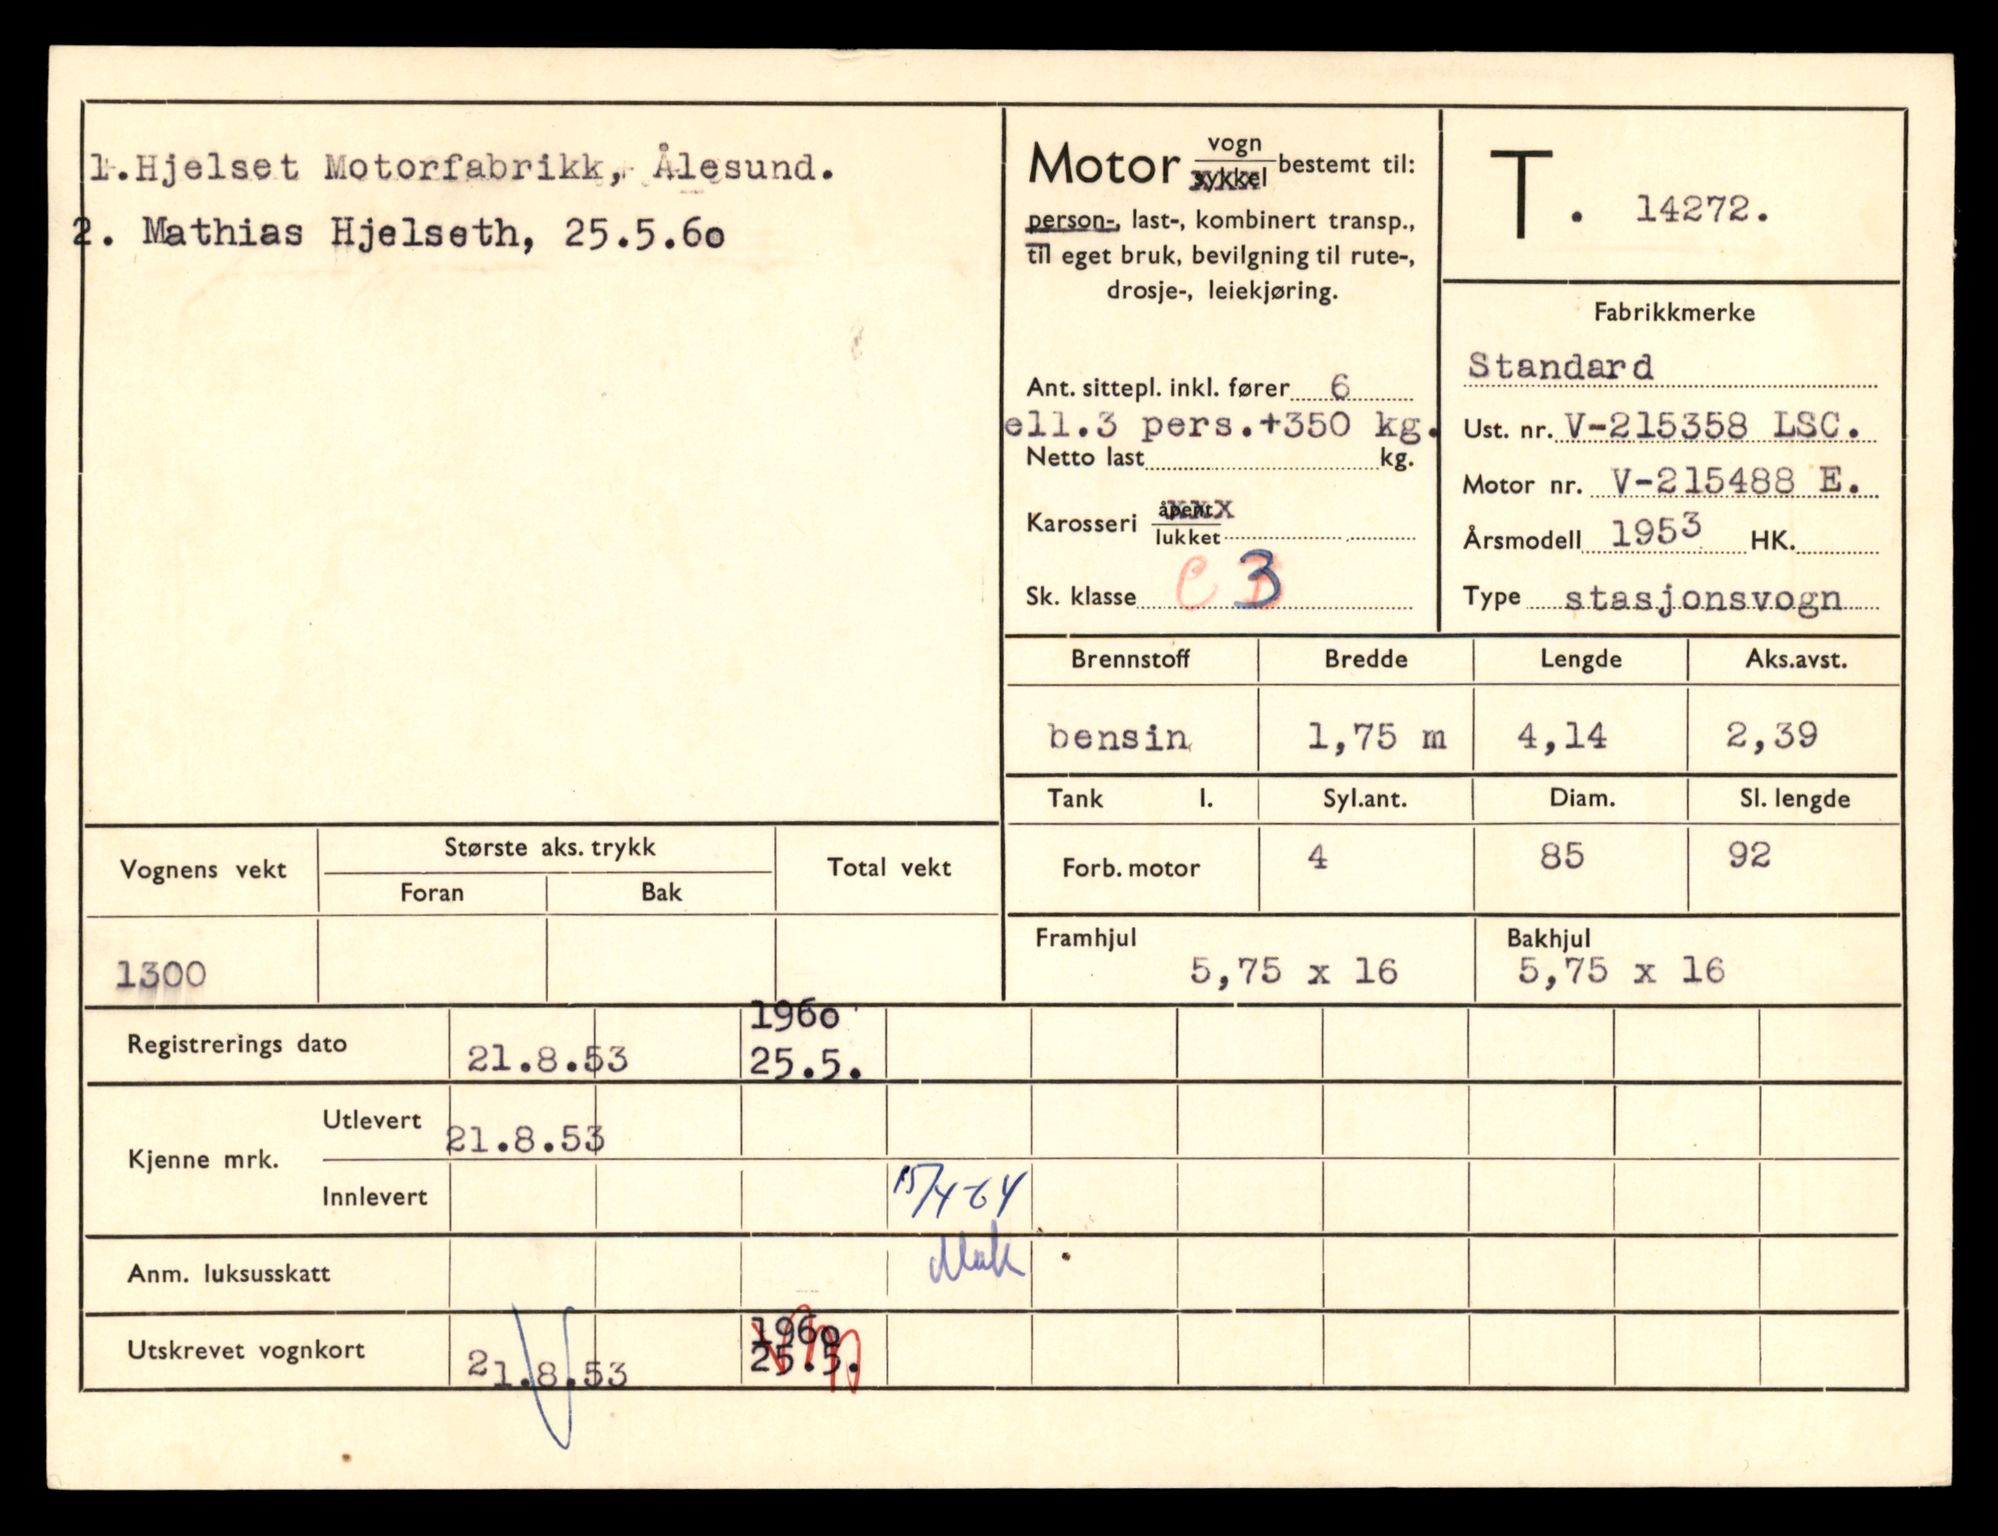 1. Hjelset Motorfabrikk, Ålesund.
2. Mathias Hjelseth, 25.5.60
Motor vogn bestemt til:
sykkel
person-, last-, kombinert transp.,
til eget bruk, bevilgning til rute-,
drosje-, leiekjøring.
Ant. sittepl. inkl. fører 6
ell.3 pers.+350 kg.
Netto last kg.
Karosseri åpent
lukket
Sk. klasse C 3
T. 14272.
Fabrikkmerke
Standard
Ust. nr. V-215358 LSC.
Motor nr. V-215488 E.
Årsmodell 1953 HK.
Type stasjonsvogn
Brennstoff Bredde Lengde Aks.avst.
bensin 1,75 m 4,14 2,39
Tank l. Syl.ant. Diam. Sl. lengde
Forb. motor 4 85 92
Framhjul Bakhjul
5,75 x 16 5,75 x 16
Vognens vekt Største aks. trykk Total vekt
Foran Bak
1300
Registrerings dato 21.8.53 1960
25.5.
Kjenne mrk. Utlevert 21.8.53
Innlevert 15/4-64
Anm. luksusskatt
Utskrevet vognkort 21.8.53 1960
25.5.